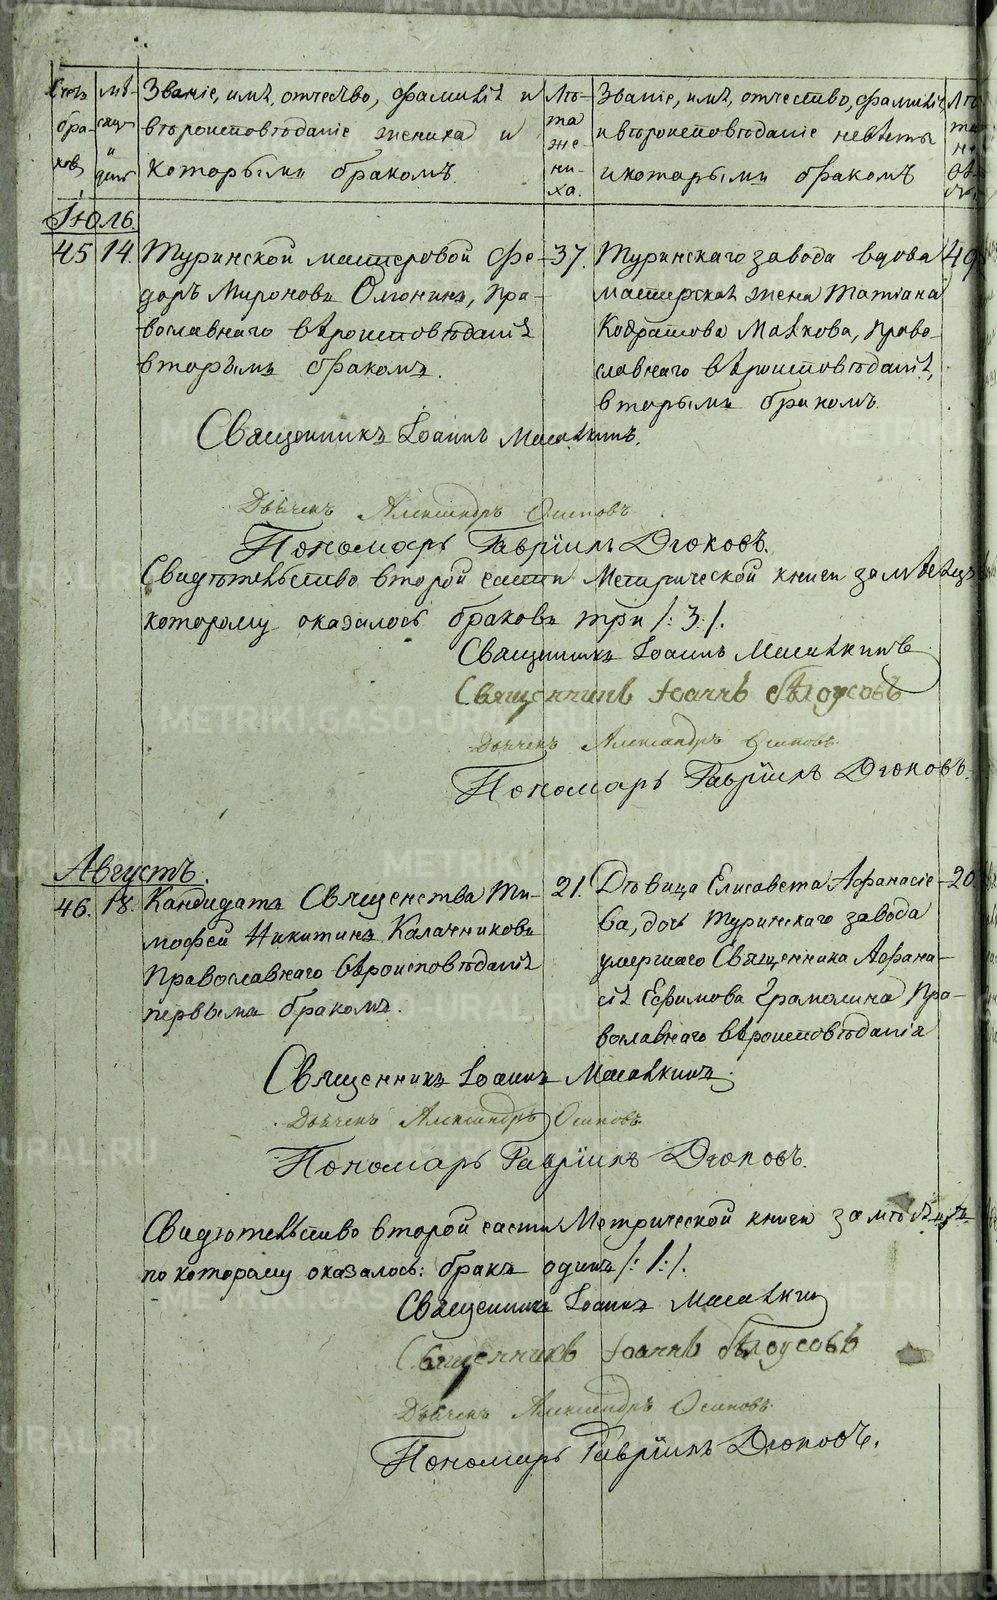 Счетъ
бра-
ковъ
мѣ-
сяцъ
и
день
Званіе, имя, отчество, фамилія и
вѣроисповѣданіе жениха и
которымъ бракомъ.
Лѣ-
та
же-
ни-
ха.
Званіе, имя, отчество, фамилія,
и вѣроисповѣданіе невѣсты
и которымъ бракомъ
Лѣ-
та
не-
вѣ-
сты
Іюль.
45
14.
Туринской мастеровой Фе-
доръ Мироновъ, пра-
вославнаго вѣроисповѣданія
вторымъ бракомъ.
37.
Туринскаго завода вдова
мастерская жена Татіана
Кодратова Малкова, право-
славнаго вѣроисповѣданія,
вторымъ бракомъ
49
Священникъ Іоаннъ
Дьячекъ Александръ Осиповъ
Пономарь Гавріилъ Дюковъ.
Свидѣтельство второй части Метрической книги за мѣсяцъ
которому оказалось браковъ три /: 3:/.
Священникъ Іоаннъ
Священникъ Іоаннъ Бѣлоусовъ
Дьячекъ Александръ Осиповъ
Пономарь Гавріилъ Дюковъ.
Августъ.
46.
18.
Кандидатъ Священства Ти-
мофей Никитинъ Калачниковъ
Православнаго вѣроисповѣданія
первымъ бракомъ.
21.
Дѣвица Елисавета Афанасіе-
ва, дочь Туринскаго завода
умершаго Священника Афана-
сія Ефимова Грамолина, Пра-
вославнаго вѣроисповѣданія
20
Священникъ Іоаннъ
Дьячекъ Александръ Осиповъ
Пономарь Гавріилъ Дюковъ.
Свидѣтельство второй части Метрической книги за мѣсяцъ
по которому оказалось: бракъ одинъ /: 1:/.
Священникъ Іоаннъ
Священникъ Іоаннъ Бѣлоусовъ
Дьячекъ Александръ Осиповъ
Пономарь Гавріилъ Дюковъ.
METRIKI.GASO-URAL.RU